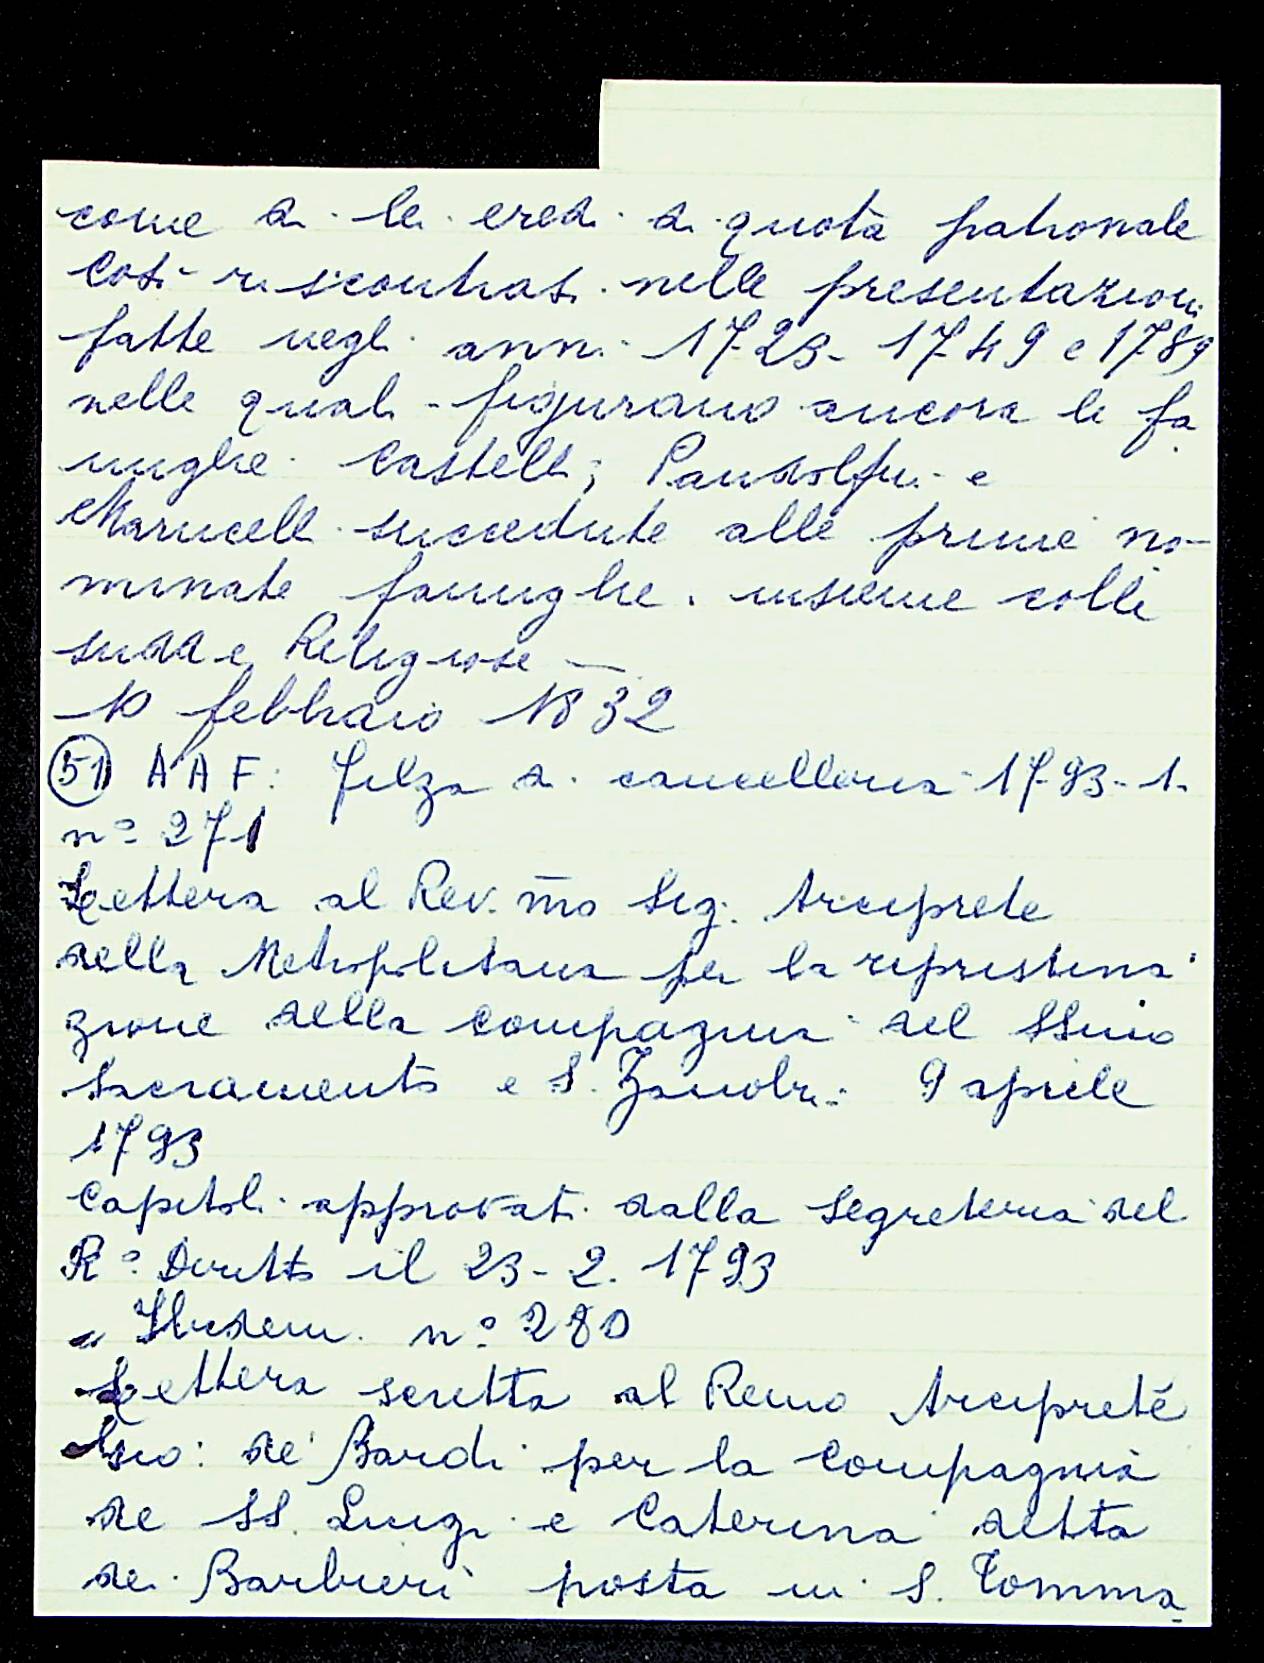 come di lei eredi di quota patronale
Così riscontrasi nelle presentazioni
fatte negli anni 1723- 1749 e 1789
nelle quali figurano ancora le fa
miglie Castelli, Pandolfini e
Marucelli succedute alle prime no-
minate famiglie insieme colle
sudd e Religiose —
10 febbraio 1832
(51) A A F: Filza di cancelleria 1793-1.
n° 271
Lettera al Rev. mo Sig. Arciprete
della Metropolitana per la ripristina
zione della compagnia del SSmo
Sacramento e S. Zanobi: 9 aprile
1793
Capitoli approvati dalla Segreteria del
R° Diritto il 23-2. 1793
" Ibidem n° 280
Lettera scritta al Remo Arciprete
de' Bardi per la Compagnia
de SS. Luigi e Caterina detta
dei Barbieri posta in S. Tomma